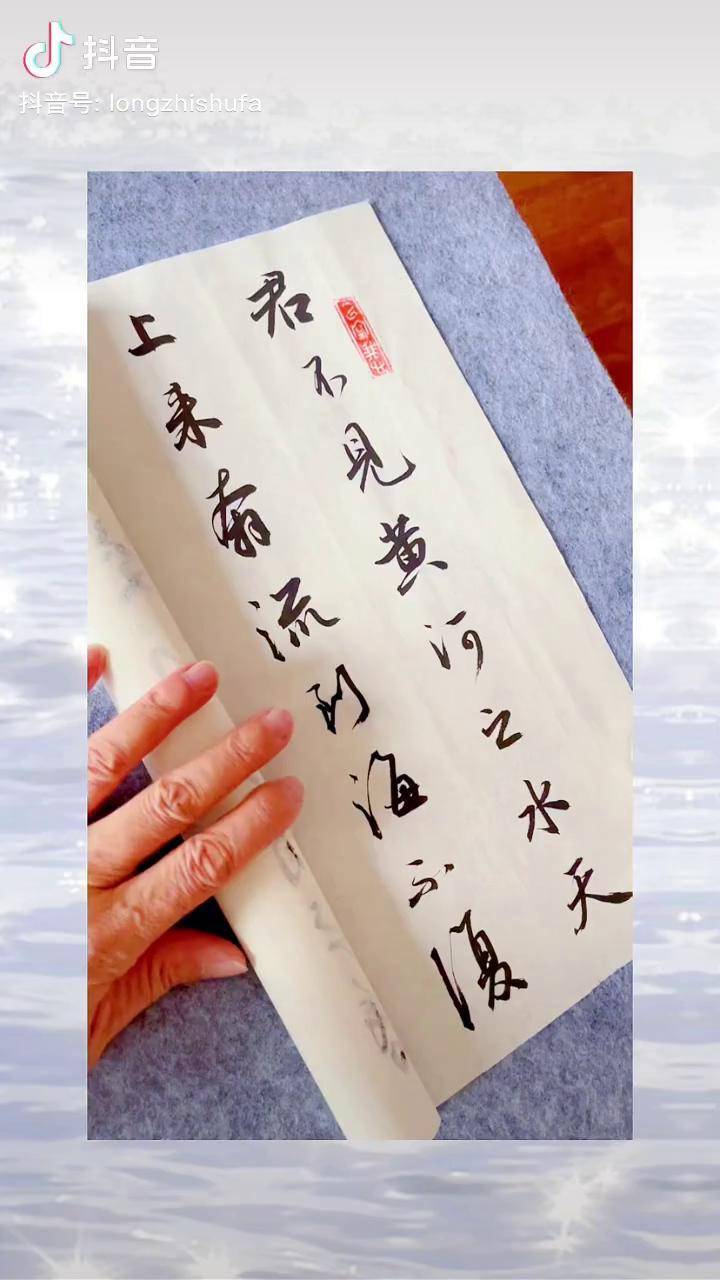 抖音
抖音号: longzhishufa
君不見黄河之水天
上来奔流到海不復